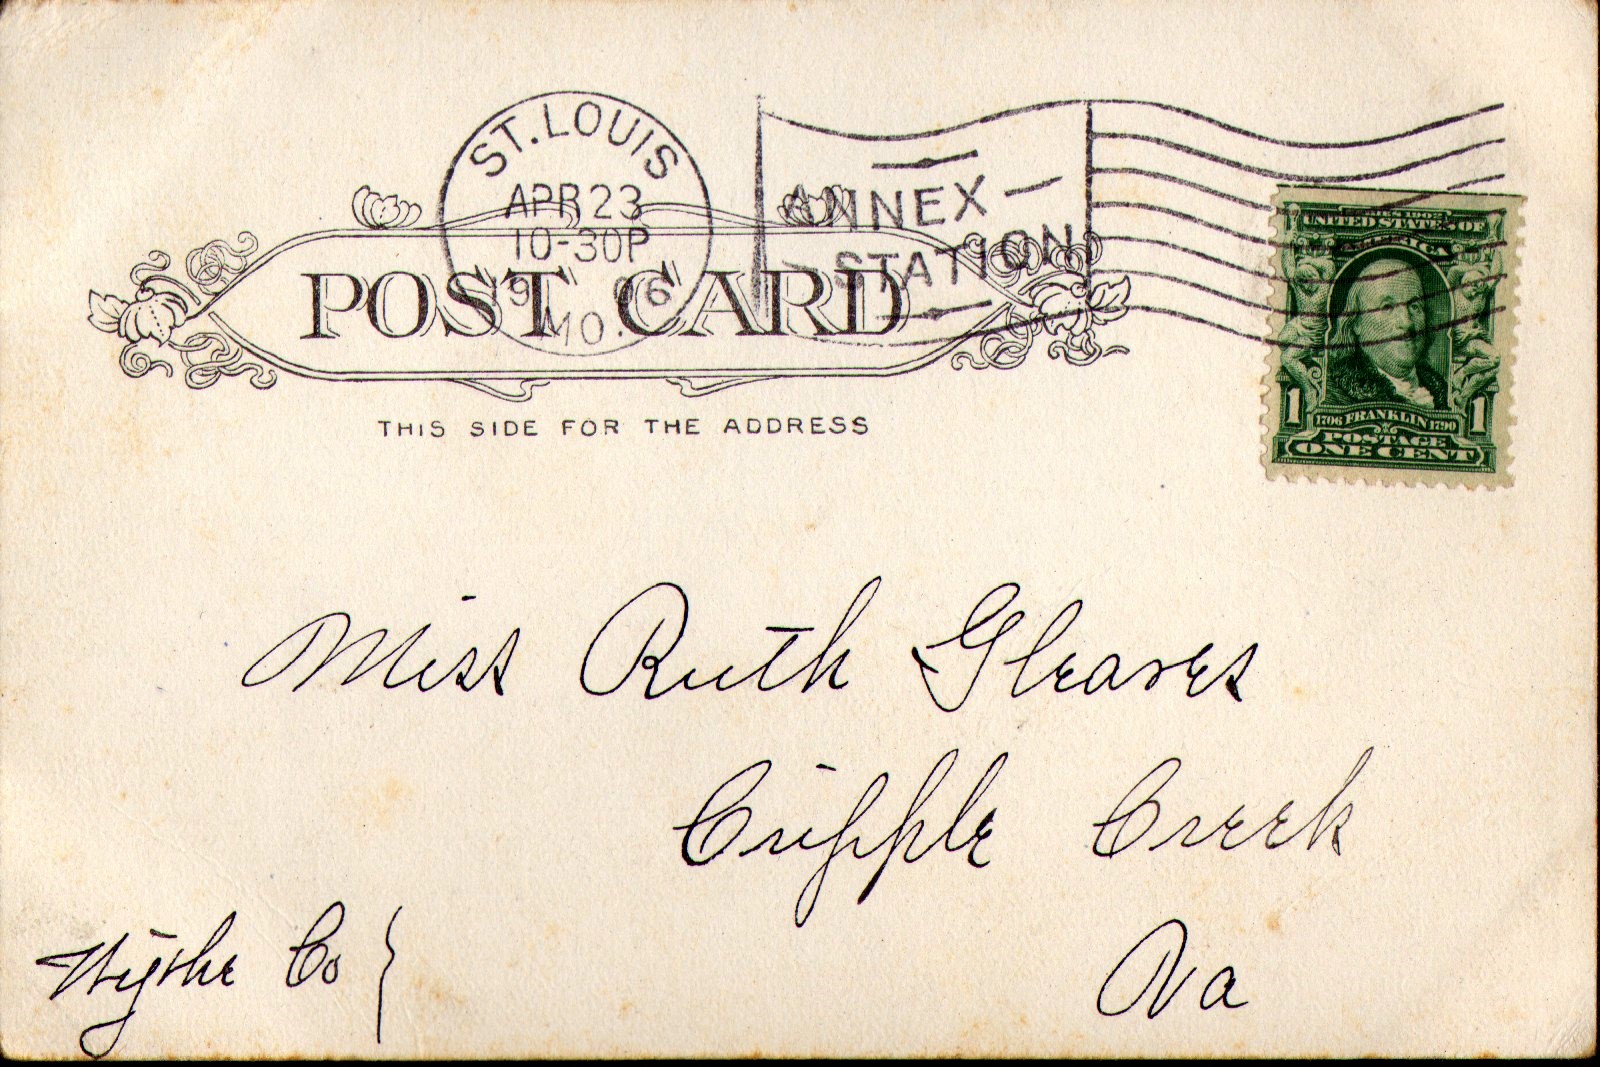 ST. LOUIS
APR 23
10-30P
MO.
ANNEX
STATION
POST CARD
THIS SIDE FOR THE ADDRESS
SERIES 1902
UNITED STATES OF
AMERICA
1 1706 FRANKLIN 1790 1
POSTAGE
ONE CENT
Miss Ruth Gleaves
Cripple Creek
Wythe Co
Va